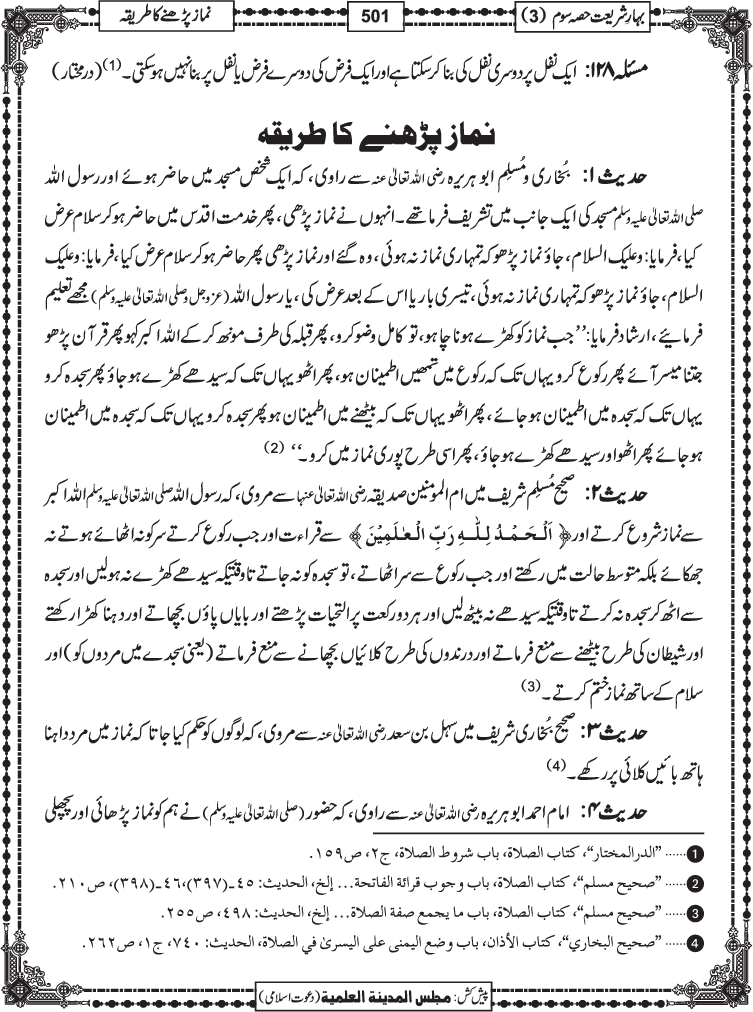 بہارِ شریعت حصہ سوم (3)
501
نماز پڑھنے کا طریقہ
مسئلہ ۱۲۸: ایک نفل پر دوسری نفل کی بنا کر سکتا ہے اور ایک فرض کی دوسرے فرض یا نفل پر بنا نہیں ہوسکتی۔(1) (درمختار)
نماز پڑھنے کا طریقہ
حدیث ۱: بُخاری و مُسلِم ابو ہریرہ رضی اللہ تعالیٰ عنہ سے راوی، کہ ایک شخص مسجد میں حاضر ہوئے اور رسول اللہ
صلی اللہ تعالیٰ علیہ وسلم مسجد کی ایک جانب میں تشریف فرما تھے۔ انہوں نے نماز پڑھی، پھر خدمت اقدس میں حاضر ہو کر سلام عرض
کیا، فرمایا: وعلیک السلام، جاؤ نماز پڑھو کہ تمہاری نماز نہ ہوئی، وہ گئے اور نماز پڑھی پھر حاضر ہو کر سلام عرض کیا، فرمایا: وعلیک
السلام، جاؤ نماز پڑھو کہ تمہاری نماز نہ ہوئی، تیسری بار یا اس کے بعد عرض کی، یا رسول اللہ (عزوجل وصلی اللہ تعالیٰ علیہ وسلم) مجھے تعلیم
فرمائیے، ارشاد فرمایا: ’’جب نماز کو کھڑے ہونا چاہو، تو کامل وضو کرو، پھر قبلہ کی طرف مونھ کر کے اللہ اکبر کہو پھر قرآن پڑھو
جتنا میسر آئے پھر رکوع کرو یہاں تک کہ رکوع میں تمھیں اطمینان ہو، پھر اٹھو یہاں تک کہ سیدھے کھڑے ہو جاؤ پھر سجدہ کرو
یہاں تک کہ سجدہ میں اطمینان ہو جائے، پھر اٹھو یہاں تک کہ بیٹھنے میں اطمینان ہو پھر سجدہ کرو یہاں تک کہ سجدہ میں اطمینان
ہو جائے پھر اٹھو اور سیدھے کھڑے ہو جاؤ، پھر اسی طرح پوری نماز میں کرو۔‘‘ (2)
حدیث ۲: صحیح مُسلِم شریف میں ام المومنین صدیقہ رضی اللہ تعالیٰ عنہا سے مروی، کہ رسول اللہ صلی اللہ تعالیٰ علیہ وسلم اللہ اکبر
سے نماز شروع کرتے اور ﴿ اَلْحَمْدُ لِلّٰهِ رَبِّ الْعٰلَمِیْنَ ﴾ سے قراءت اور جب رکوع کرتے سر کو نہ اٹھائے ہوتے نہ
جھکائے بلکہ متوسط حالت میں رکھتے اور جب رکوع سے سر اٹھاتے، تو سجدہ کو نہ جاتے تاوقتیکہ سیدھے کھڑے نہ ہولیں اور سجدہ
سے اٹھ کر سجدہ نہ کرتے تاوقتیکہ سیدھے نہ بیٹھ لیں اور ہر دو رکعت پر التحیات پڑھتے اور بایاں پاؤں بچھاتے اور دہنا کھڑا رکھتے
اور شیطان کی طرح بیٹھنے سے منع فرماتے اور درندوں کی طرح کلائیاں بچھانے سے منع فرماتے (یعنی سجدے میں مردوں کو) اور
سلام کے ساتھ نماز ختم کرتے۔(3)
حدیث ۳: صحیح بُخاری شریف میں سہل بن سعد رضی اللہ تعالیٰ عنہ سے مروی، کہ لوگوں کو حکم کیا جاتا کہ نماز میں مرد داہنا
ہاتھ بائیں کلائی پر رکھے۔(4)
حدیث ۴: امام احمد ابو ہریرہ رضی اللہ تعالیٰ عنہ سے راوی، کہ حضور (صلی اللہ تعالیٰ علیہ وسلم) نے ہم کو نماز پڑھائی اور پچھلی
1 ...... ”الدرالمختار“، کتاب الصلاة، باب شروط الصلاة، ج۲، ص۱۵۹.
2 ...... ”صحیح مسلم“، کتاب الصلاة، باب وجوب قرائة الفاتحة... إلخ، الحدیث: ۴۵ـ(۳۹۷)،۴۶ـ(۳۹۸)، ص۲۱۰.
3 ...... ”صحیح مسلم“، کتاب الصلاة، باب ما یجمع صفة الصلاة... إلخ، الحدیث: ۴۹۸، ص۲۵۵.
4 ...... ”صحیح البخاري“، کتاب الأذان، باب وضع الیمنی علی الیسریٰ في الصلاة، الحدیث: ۷۴۰، ج۱، ص۲۶۲.
پیش کش: مجلس المدینة العلمیة (دعوت اسلامی)